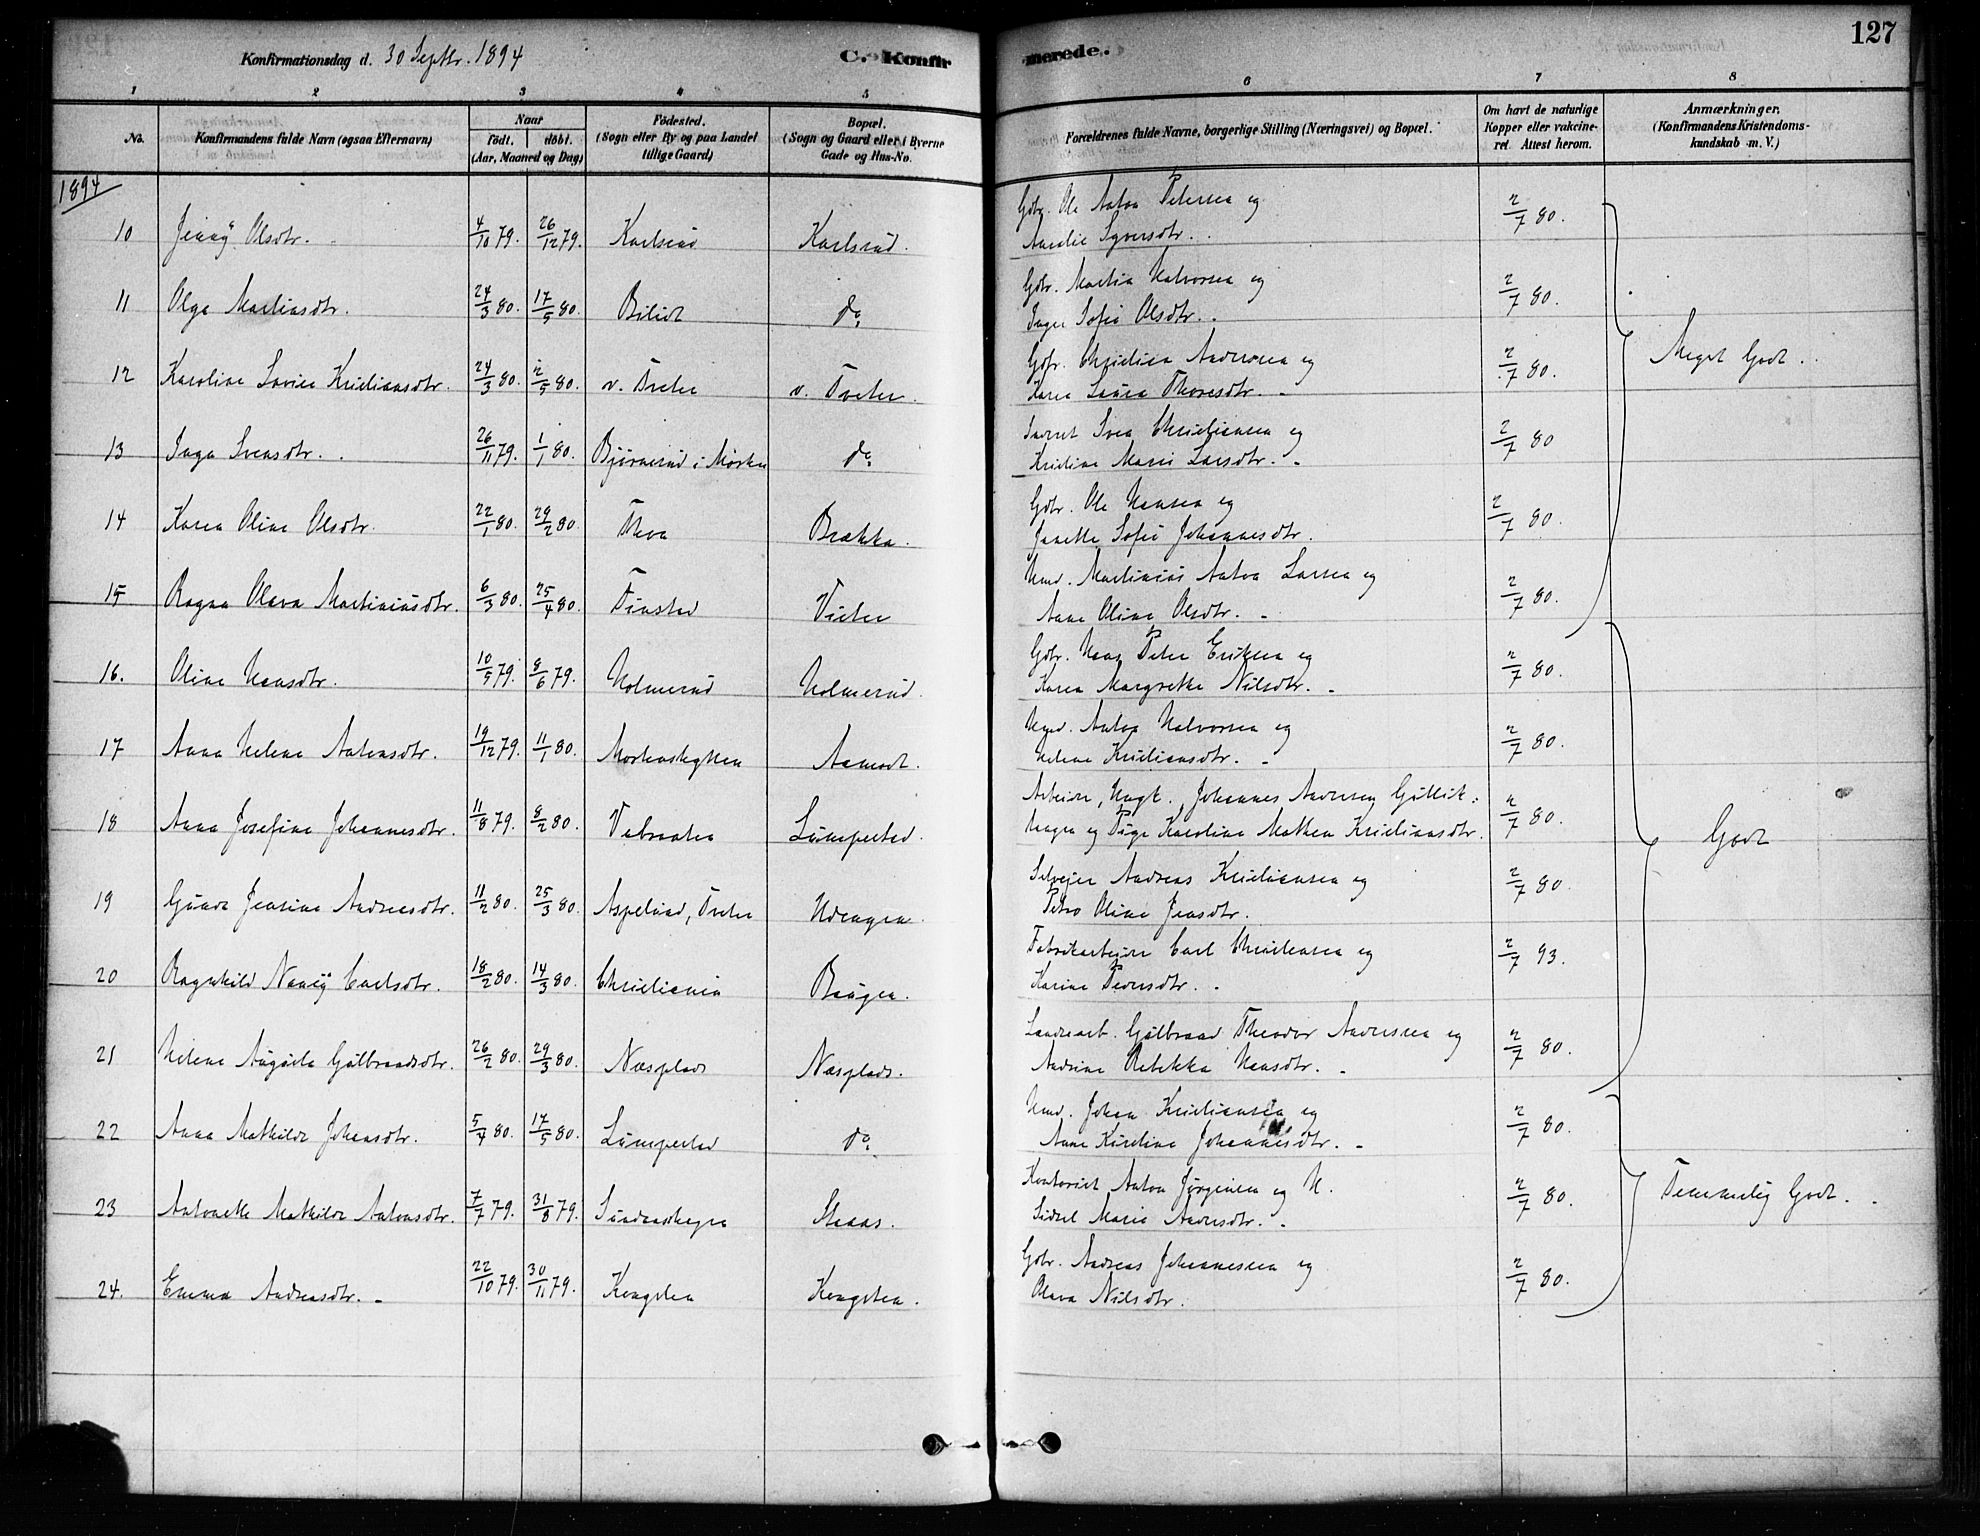 127
Konfirmationsdag d. 30 Septbr. 1894
C. Konfirmerede.
1 2 3 4 5 6 7 8
No. Konfirmandens fulde Navn (ogsaa Efternavn) Naar født. døbt. (Aar, Maaned og Dag) Fødested. (Sogn eller By og paa Landet tillige Gaard) Bopæl. (Sogn og Gaard eller i Byerne Gade og Hus-No. Forældrenes fulde Navne, borgerlige Stilling (Næringsvei) og Bopæl. Om havt de naturlige Kopper eller vakcineret. Attest herom. Anmærkninger. (Konfirmandens Kristendomskundskab m. V.)
1894
10 Jenny Olsdtr. 4/10 79. 26/12 79. Karlsrud Karlsrud. Gdbr. Ole Anton Petersen og 2/7 80.
Amalie Syversdtr.
11 Olga Martinsdtr. 24/3 80. 17/5 80. Bilidt do. Gdbr. Martin Halvorsen og 2/7 80.
Inger Sofie Olsdtr.
12 Karoline Lovise Kristiansdtr. 24/3 80. 2/5 80. v. Tveter v. Tveter. Gdbr. Christian Andersen og 2/7 80. Meget Godt.
Karen Laura Thoresdtr.
13 Inga Svensdtr. 26/11 79. 1/1 80. Bjørnerud i Mørken do. Svend Christiansen og 2/7 80
Kristine Marie Larsdtr.
14 Karen Oline Olsdtr. 22/1 80. 29/2 80. Thon Brækka. Gdbr. Ole Hansen og 2/7 80.
Janette Sofie Johannesdtr.
15 Ragna Olava Martiniusdtr. 6/3 80. 25/4 80. Finstad Tveter Hmd. Martinius Anton Larsen og 2/7 80.
Anne Oline Olsdtr.
16. Oline Hansdtr. 10/5 79. 8/6 79. Holmerud Holmerud. Gdbr. Hans Peter Eriksen og 2/7 80.
Karen Margrethe Nilsdtr.
17 Anna Helene Antonsdtr. 19/12 79. 11/1 80. Mortenshytten Aamodt. Hmd. Anton Halvorsen og 2/7 80.
Helene Kristiansdtr.
18 Anna Josefine Johannesdtr. 11/8 79. 8/2 80. Vebraaten Lümperted. Arbeider, Ungk. Johannes Andersen Gullik- 2/7 80. Godt
haugen og Pige Karoline Mathea Kristiansdtr.
19 Gunda Jensine Andreasdtr. 11/2 80. 25/3 80. Aspelund, Tveter Udengen. Selveier Andreas Kristiansen og 2/7 80.
Petro Oline Jensdtr.
20 Ragnhild Nanny Carlsdtr. 18/2 80. 14/3 80. Christiania Baugen. Fabrikarbeider Carl Christensen og 2/7 93.
Karine Pedersdtr.
21 Helene Augusta Gulbrandsdtr. 26/2 80. 29/3 80. Næsplads Næsplads. Landarb. Gulbrand Theodor Andersen og 2/7 80.
Andrine Rebekka Hansdtr.
22 Anna Mathilde Johansdtr. 5/4 80. 17/5 80. Lümperted do. Hmd. Johan Kristiansen og 2/7 80.
Anne Kirstine Johannesdtr.
23 Antonette Mathilde Antonsdtr. 7/7 79. 31/8 79. Skaas. Kontorist Anton Jørgensen og H. 2/7 80. Temmelig Godt.
Sidsel Marie Andersdtr.
24. Emma Andreasdtr. 22/10 79. 30/11 79. Kongsten Kongsten. Gdbr. Andreas Johannessen og 2/7 80.
Olava Nilsdtr.